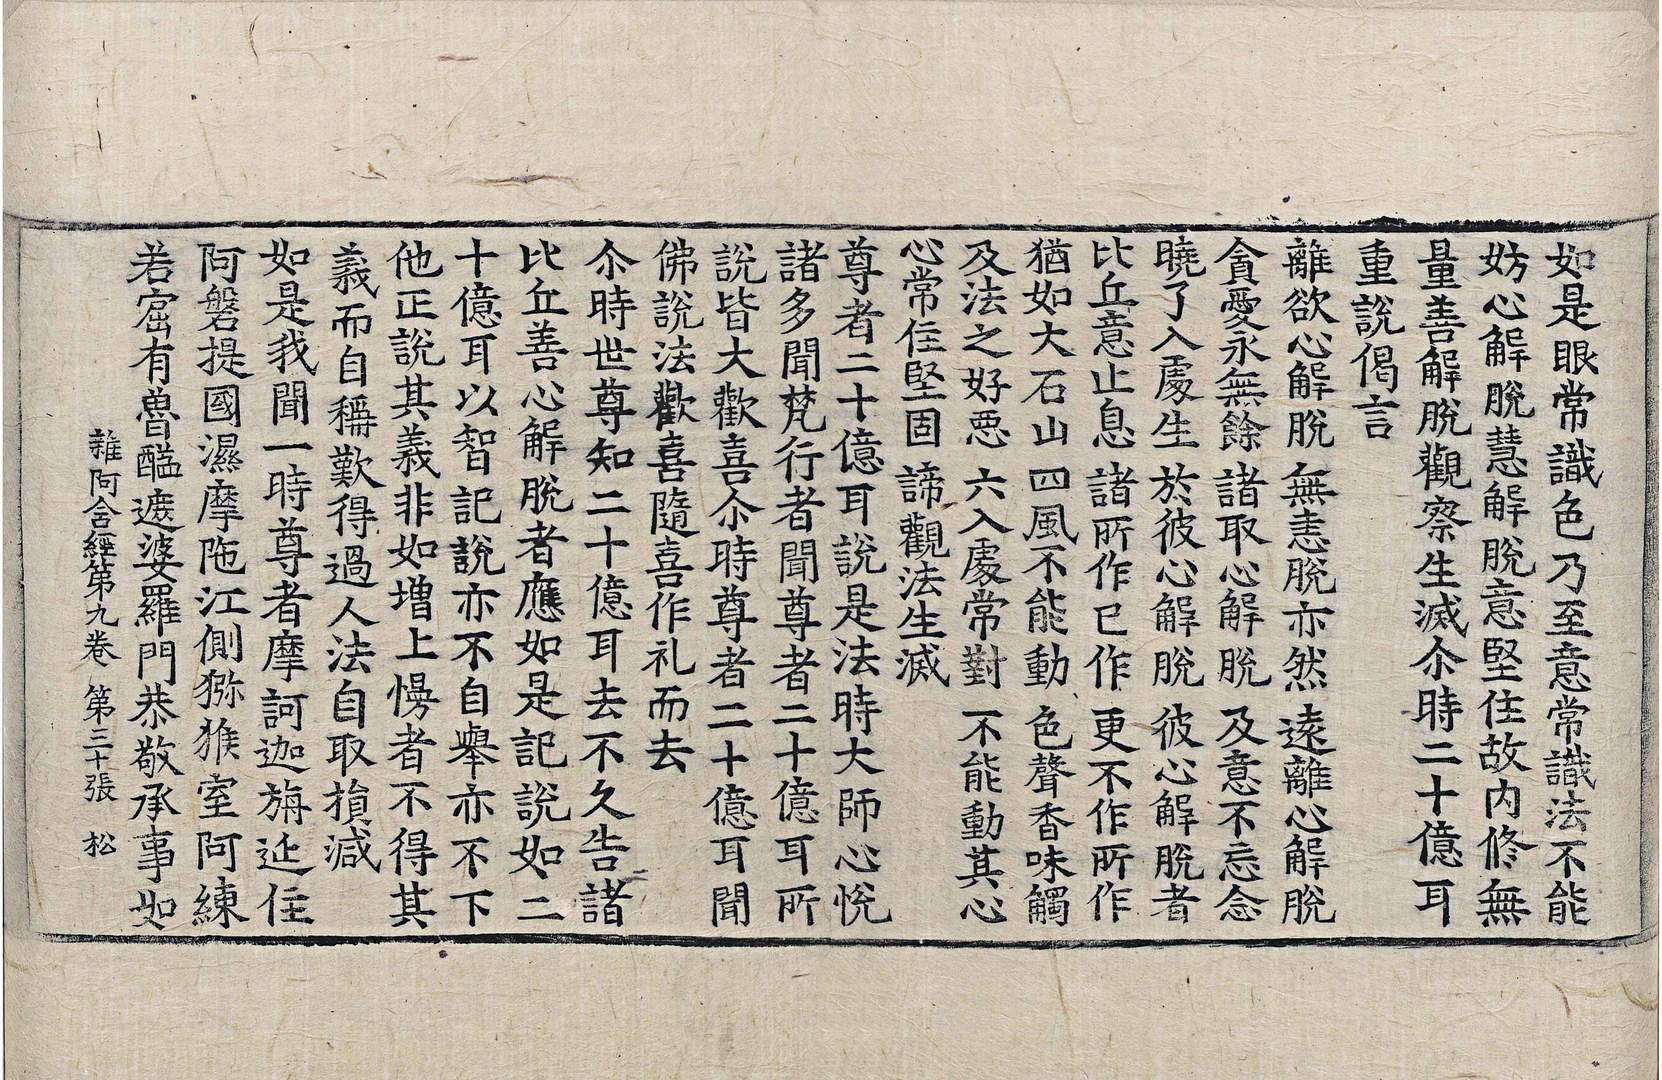 如是眼常識色乃至意常識法不能
妨心解脫慧解脫意堅住故內修無
量善解脫觀察生滅尒時二十億耳
重說偈言
離欲心解脫 無恚脫亦然 遠離心解脫
貪愛永無餘 諸取心解脫 及意不忘念
曉了入處生 於彼心解脫 彼心解脫者
比丘意止息 諸所作已作 更不作所作
猶如大石山 四風不能動 色聲香味觸
及法之好惡 六入處常對 不能動其心
心常住堅固 諦觀法生滅
尊者二十億耳說是法時大師心悅
諸多聞梵行者聞尊者二十億耳所
說皆大歡喜尒時尊者二十億耳聞
佛說法歡喜隨喜作礼而去
尒時世尊知二十億耳去不久告諸
比丘善心解脫者應如是記說如二
十億耳以智記說亦不自舉亦不下
他正說其義非如增上慢者不得其
義而自稱歎得過人法自取損減
如是我聞一時尊者摩訶迦旃延住
阿磐提國濕摩陁江側獼猴室阿練
若窟有魯醯遮婆羅門恭敬承事如
雜阿含經第九卷 第三十張 松